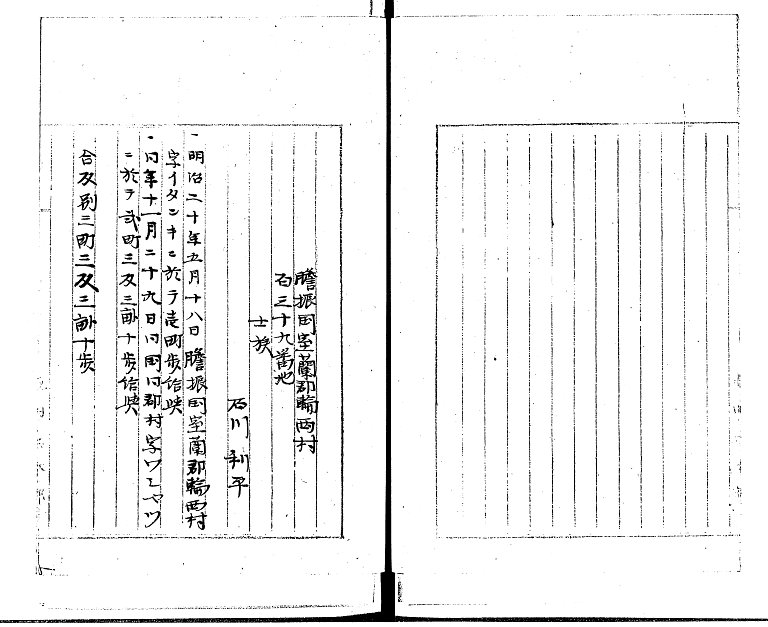 膽振国室蘭郡輪西村
百三十九番地
士族
石川利平
一明治二十年五月十八日膽振国室蘭郡輪西村
字イタンキニ於テ壱町歩給与
一同年十一月二十九日同国同郡村字ワシヤツ
ニ於テ弐町三反三畝十歩給与
合反別三町三反三畝十歩